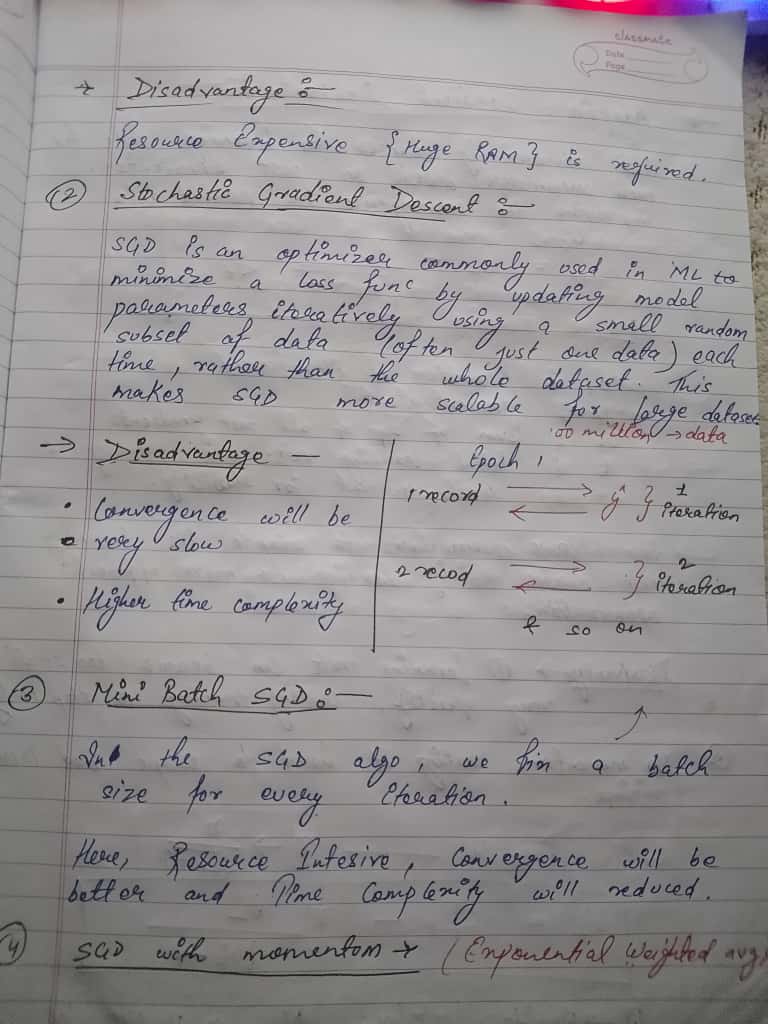 classmate
Date
Page
→ Disadvantage :-
Resource Expensive {Huge RAM} is required.
② Stochastic Gradient Descent :-
SGD is an optimizer commonly used in ML to
minimize a loss func by updating model
parameters iteratively using a small random
subset of data (often just one data) each
time, rather than the whole dataset. This
makes SGD more scalable for large dataset
00 million → data
→ Disadvantage -
• Convergence will be
• very slow
• Higher time complexity
Epoch 1
1 record ŷ } 1
iteration
2 recod } 2
iteration
& so on
③ Mini Batch SGD :-
In the SGD algo, we fin a batch
size for every iteration.
Here, Resource Intesive, Convergence will be
better and Time Complexity will reduced.
④ SGD with momentom → (Exponential Weighted avg)